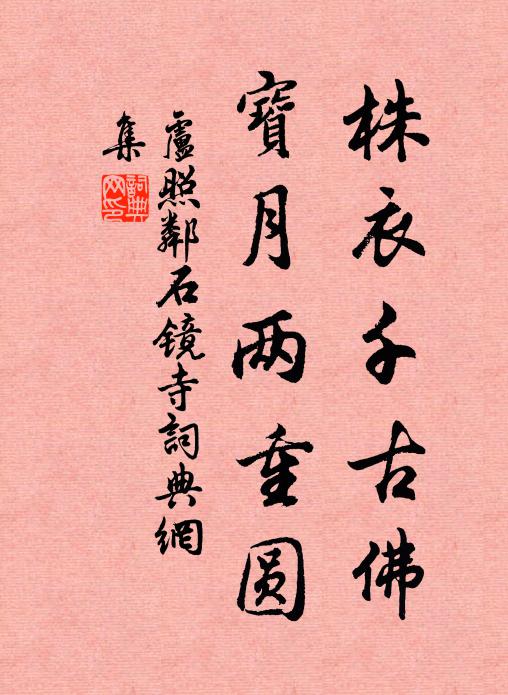 株衣千古佛
寶月两重圆
盧照鄰石鏡寺詞典網
集
詞典
网印